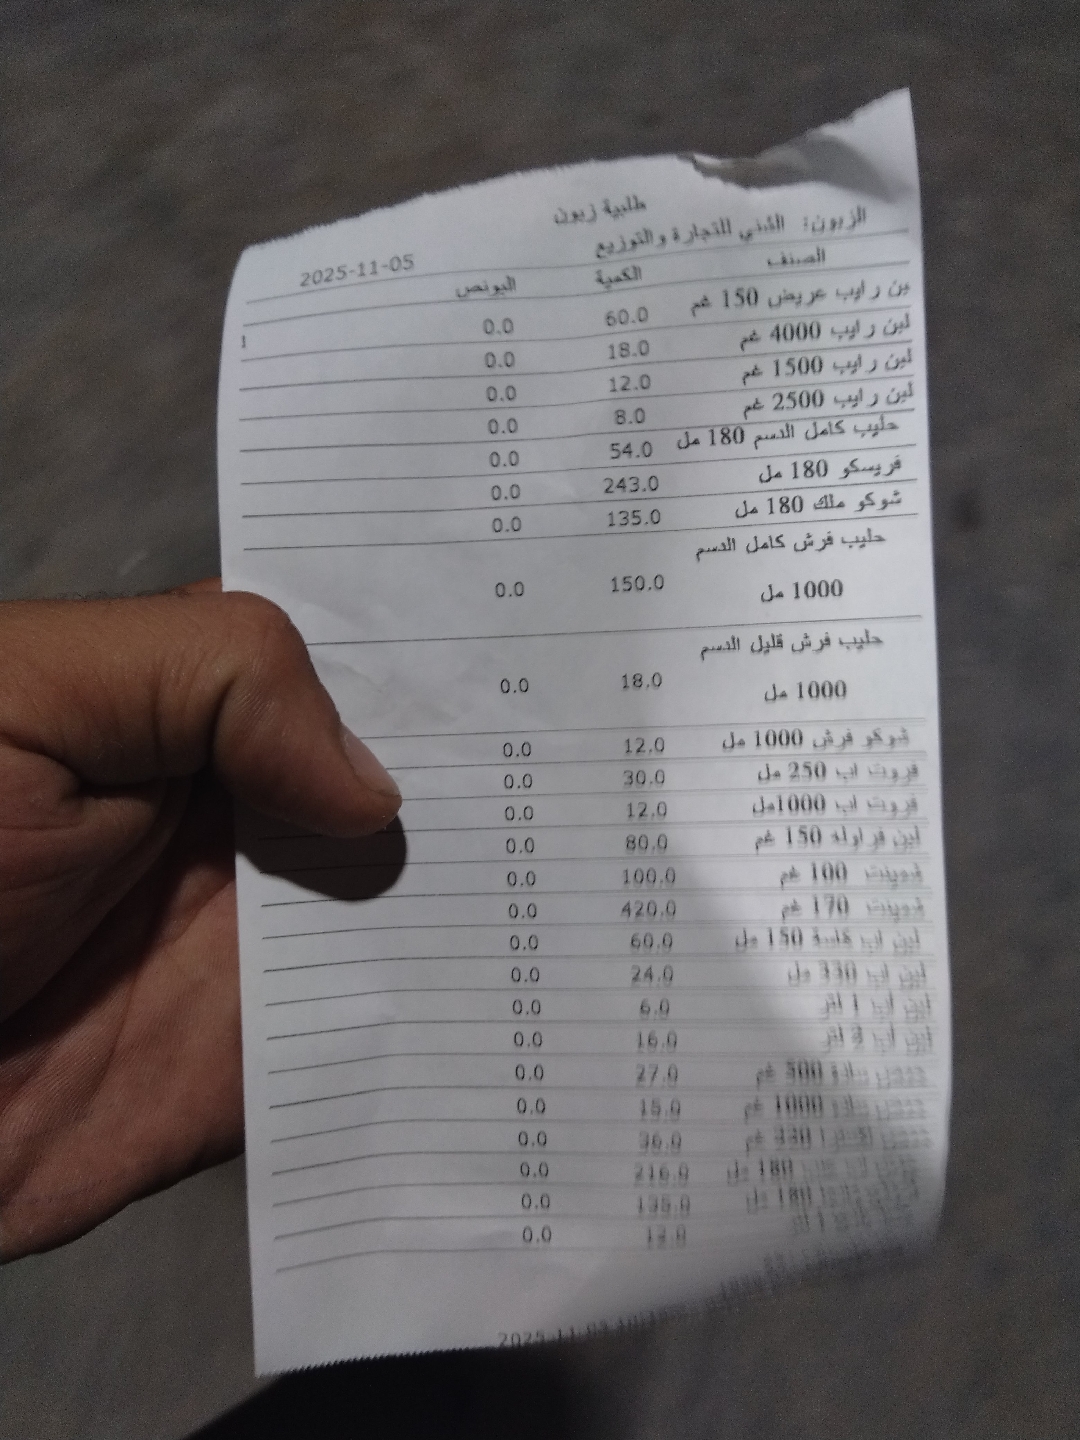 طلبية زبون
الزبون: الشني للتجارة والتوزيع
2025-11-05
الصنف الكمية البونص
بن رايب عريض 150 غم 60.0 0.0
لبن رايب 4000 غم 18.0 0.0
لبن رايب 1500 غم 12.0 0.0
لبن رايب 2500 غم 8.0 0.0
حليب كامل الدسم 180 مل 54.0 0.0
فريسكو 180 مل 243.0 0.0
شوكو ملك 180 مل 135.0 0.0
حليب فرش كامل الدسم
1000 مل 150.0 0.0
حليب فرش قليل الدسم
1000 مل 18.0 0.0
شوكو فرش 1000 مل 12.0 0.0
فروت اب 250 مل 30.0 0.0
فروت اب 1000مل 12.0 0.0
لبن فراولة 150 غم 80.0 0.0
100 غم 100.0 0.0
170 غم 420.0 0.0
لبن اب كاسة 150 مل 60.0 0.0
لبن اب 330 مل 24.0 0.0
لبن اب 1 لتر 6.0 0.0
لبن اب 2 لتر 16.0 0.0
سادة 500 غم 27.0 0.0
سادة 1000 غم 15.0 0.0
330 غم 36.0 0.0
180 مل 216.0 0.0
180 مل 135.0 0.0
0.0